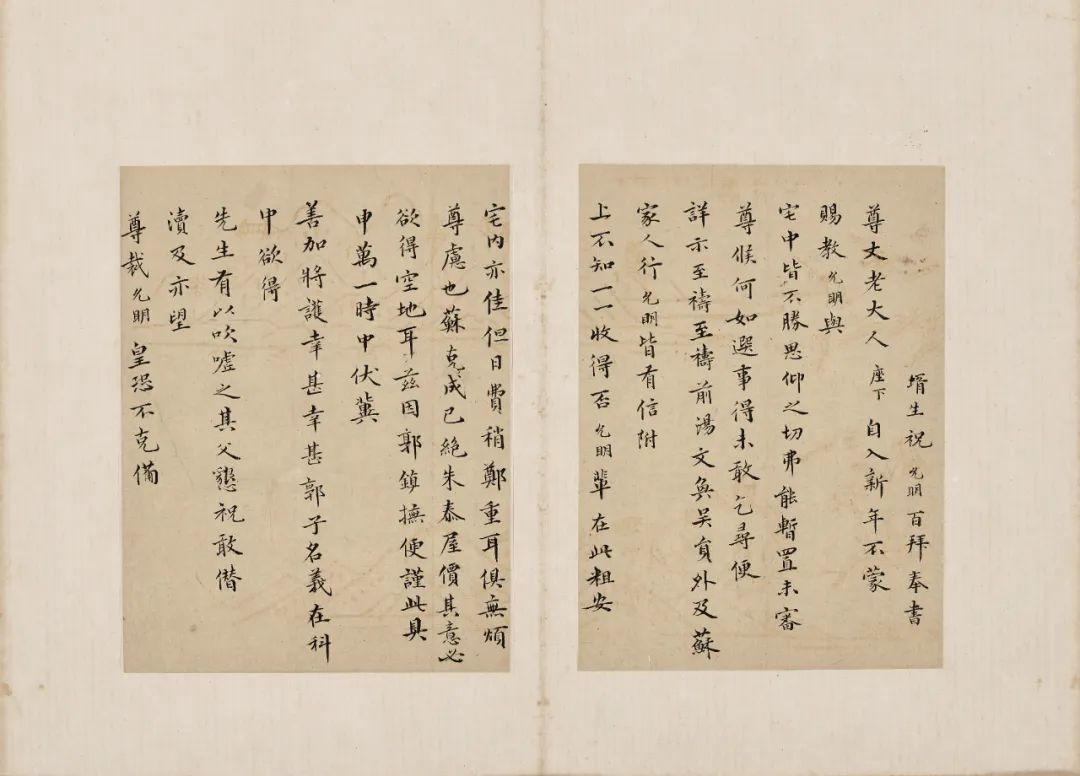 壻生祝允明百拜奉書
尊丈老大人座下自入新年不蒙
賜教允明與
宅中皆不勝思仰之切弗能暫置未審
尊候何如選事得未敢乞尋便
詳示至禱至禱前湯文奐吳員外及蘇
家人行允明皆有信附
上不知一一收得否允明輩在此粗安
宅內亦佳但日費稍鄭重耳俱無煩
尊慮也蘇克成已絕朱泰屋價其意必
欲得空地耳茲因郭鎮撫便謹此具
申萬一時中伏冀
善加將護幸甚幸甚郭子名義在科
中欲得
先生有以吹噓之其父懇祝敢僭
瀆及亦望
尊裁允明皇恐不克備